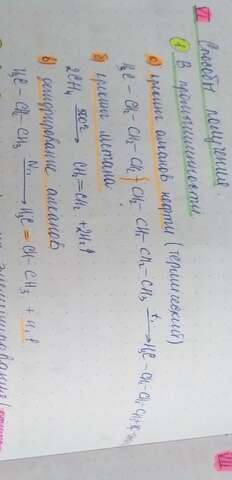 VI Способы получения.
1 В промышленности
а) крекинг алканов нефти (термический)
H₃C – CH₂ – CH₂ – CH₂ { CH₂ – CH₂ – CH₂ – CH₃ t →
б) крекинг метана
2CH₄ → CH₂=CH₂ + 2H₂↑
в) дегидрирование алканов
H₃C – CH₂ – CH₃ Ni → H₂C = CH – CH₃ + H₂↑
VII